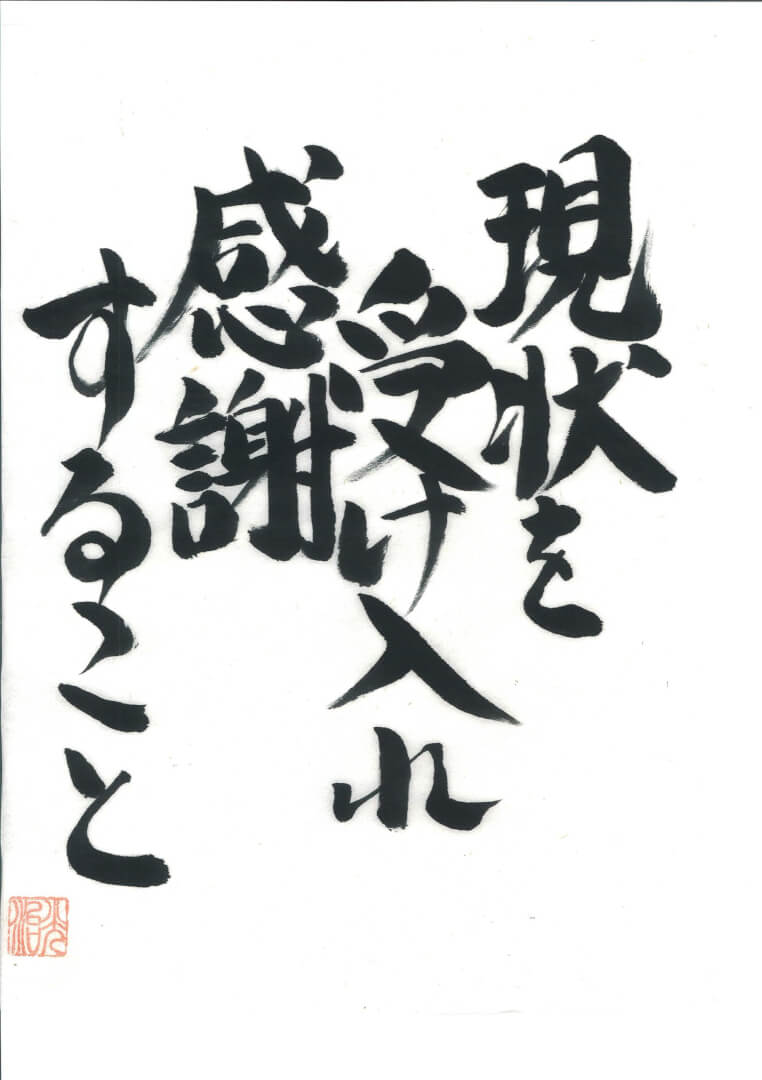 現状を
受け入れ
感謝
すること